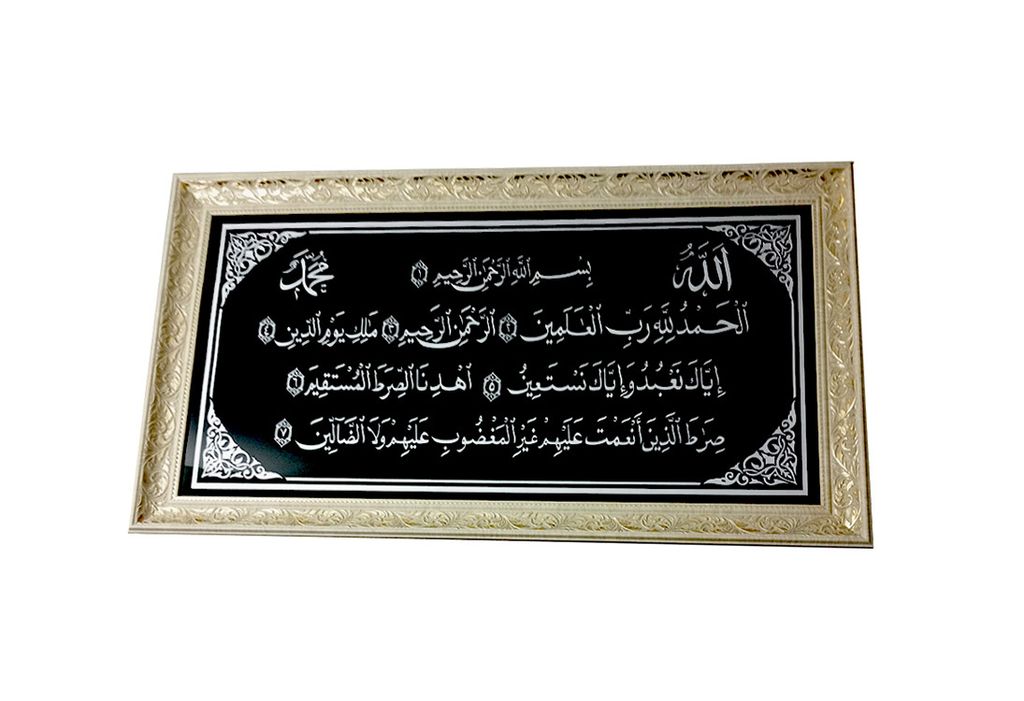 الله
محمد
بِسْمِ ٱللَّهِ ٱلرَّحْمَٰنِ ٱلرَّحِيمِ ١
ٱلْحَمْدُ لِلَّهِ رَبِّ ٱلْعَٰلَمِينَ ٢ ٱلرَّحْمَٰنِ ٱلرَّحِيمِ ٣ مَٰلِكِ يَوْمِ ٱلدِّينِ ٤
إِيَّاكَ نَعْبُدُ وَإِيَّاكَ نَسْتَعِينُ ٥ ٱهْدِنَا ٱلصِّرَٰطَ ٱلْمُسْتَقِيمَ ٦
صِرَٰطَ ٱلَّذِينَ أَنْعَمْتَ عَلَيْهِمْ غَيْرِ ٱلْمَغْضُوبِ عَلَيْهِمْ وَلَا ٱلضَّآلِّينَ ٧